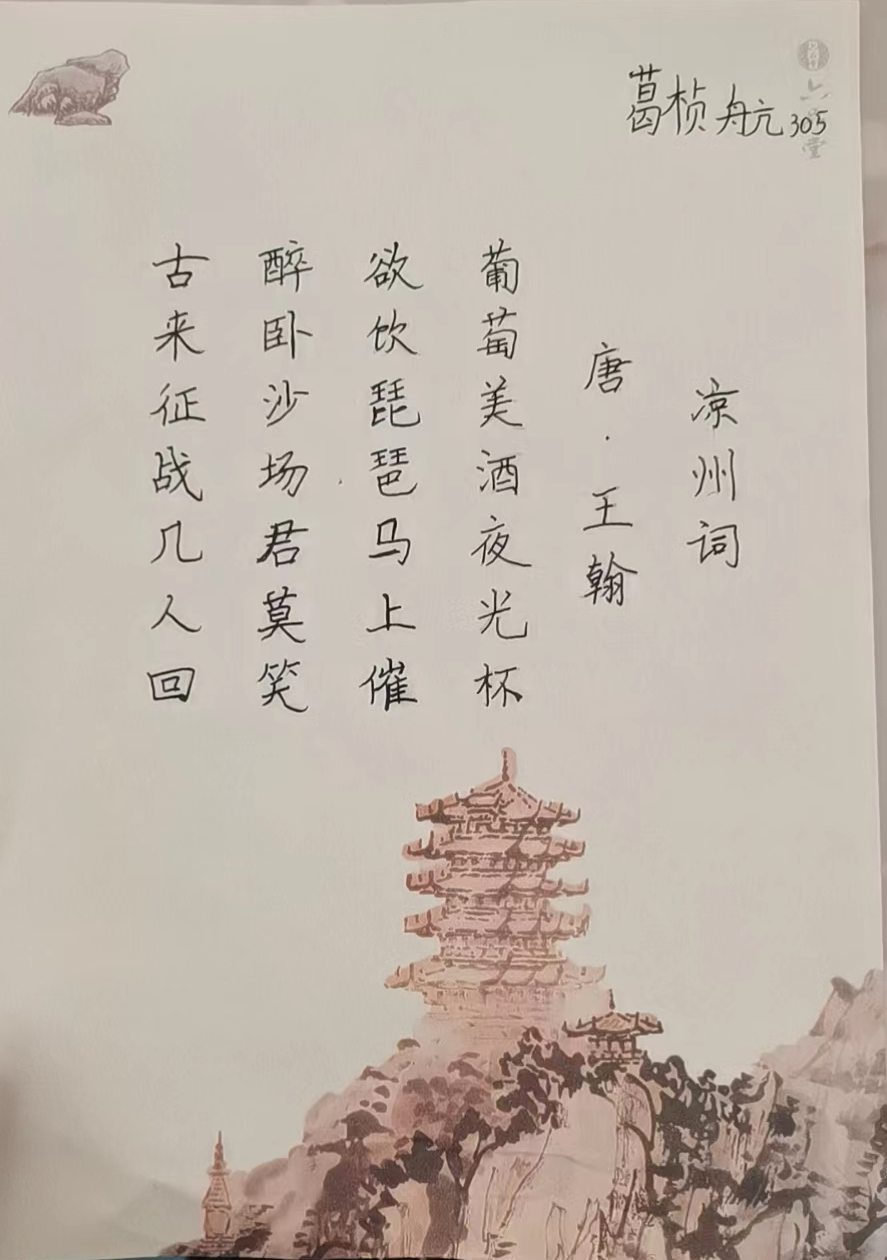 葛桢航305
凉州词
唐·王翰
葡萄美酒夜光杯
欲饮琵琶马上催
醉卧沙场君莫笑
古来征战几人回